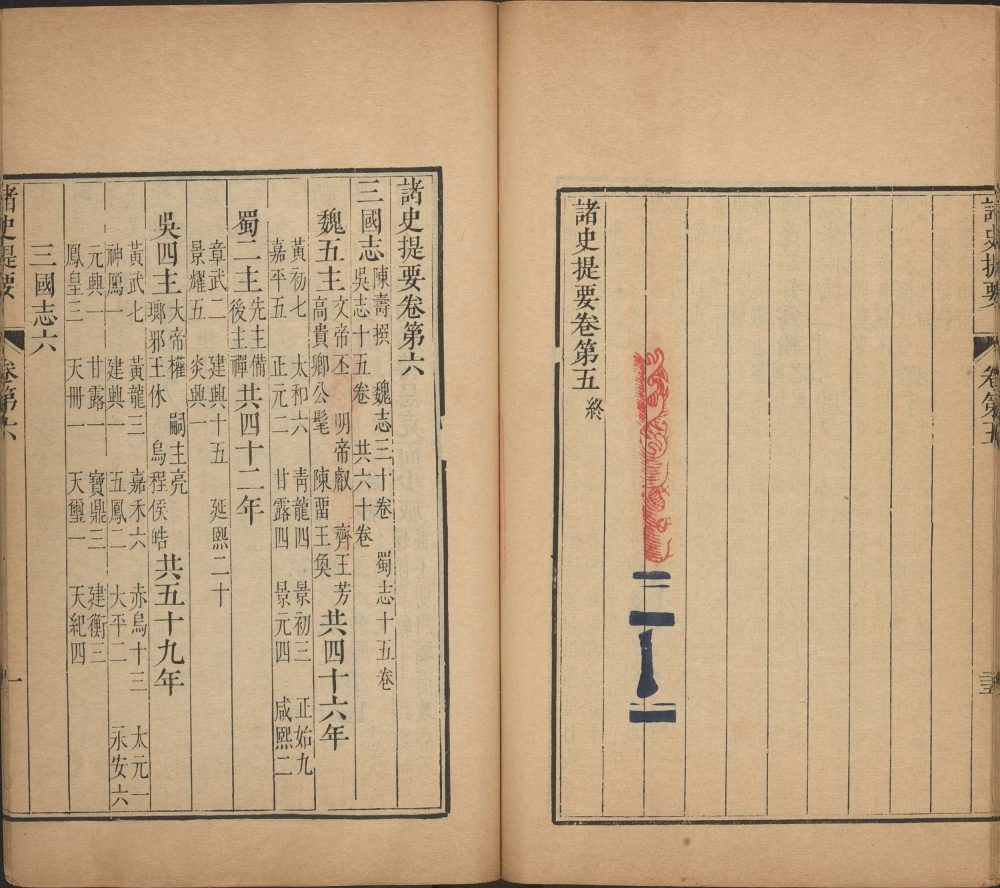 諸史提要 卷第五
諸史提要卷第五 終
諸史提要卷第六
三國志 陳壽撰 魏志三十卷 蜀志十五卷
吳志十五卷 共六十卷
魏五主 文帝丕 明帝叡 齊王芳
高貴鄉公髦 陳畱王奐 共四十六年
黃初七 太和六 青龍四 景初三 正始九
嘉平五 正元二 甘露四 景元四 咸熙二
蜀二主 先主備
後主禪 共四十二年
章武二 建興十五 延熙二十
景耀五 炎興一
吳四主 大帝權 嗣主亮
瑯邪王休 烏程侯皓 共五十九年
黃武七 黃龍三 嘉禾六 赤烏十三 太元一
神鳳一 建興一 五鳳二 大平二 永安六
元興一 甘露一 寶鼎三 建衡三
鳳皇三 天冊一 天璽一 天紀四
三國志六
諸史提要 卷第六 一